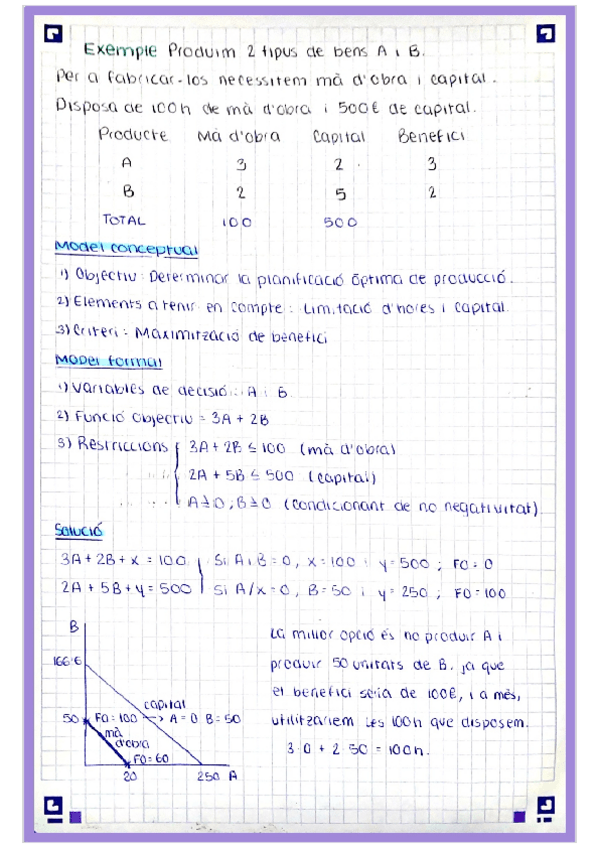 Exemple Produim 2 tipus de bens A i B.
Per a fabricar-los necessitem mà d'obra i capital.
Disposa de 100h de mà d'obra i 500€ de capital.
Producte Mà d'obra Capital Benefici
A 3 2 3
B 2 5 2
TOTAL 100 500
Model conceptual
1) Objectiu: Determinar la planificació òptima de producció.
2) Elements a tenir en compte: Limitació d'hores i capital.
3) Criteri: Maximització de benefici
Model formal
1) Variables de decisió: A i B
2) Funció objectiu = 3A + 2B
3) Restriccions { 3A + 2B ≤ 100 (mà d'obra)
2A + 5B ≤ 500 (capital)
A ≥ 0; B ≥ 0 (condicionant de no negativitat)
Solució
3A + 2B + x = 100 Si A i B = 0, x = 100 i y = 500; FO = 0
2A + 5B + y = 500 Si A/x = 0, B = 50 i y = 250; FO = 100
B
166'6
capital
50 FO = 100 → A = 0 B = 50
mà
d'obra
FO = 60
20 250 A
La millor opció és no produir A i
produir 50 unitats de B, ja que
el benefici seria de 100€, i a més,
utilitzaríem les 100h que disposem.
3·0 + 2·50 = 100h.